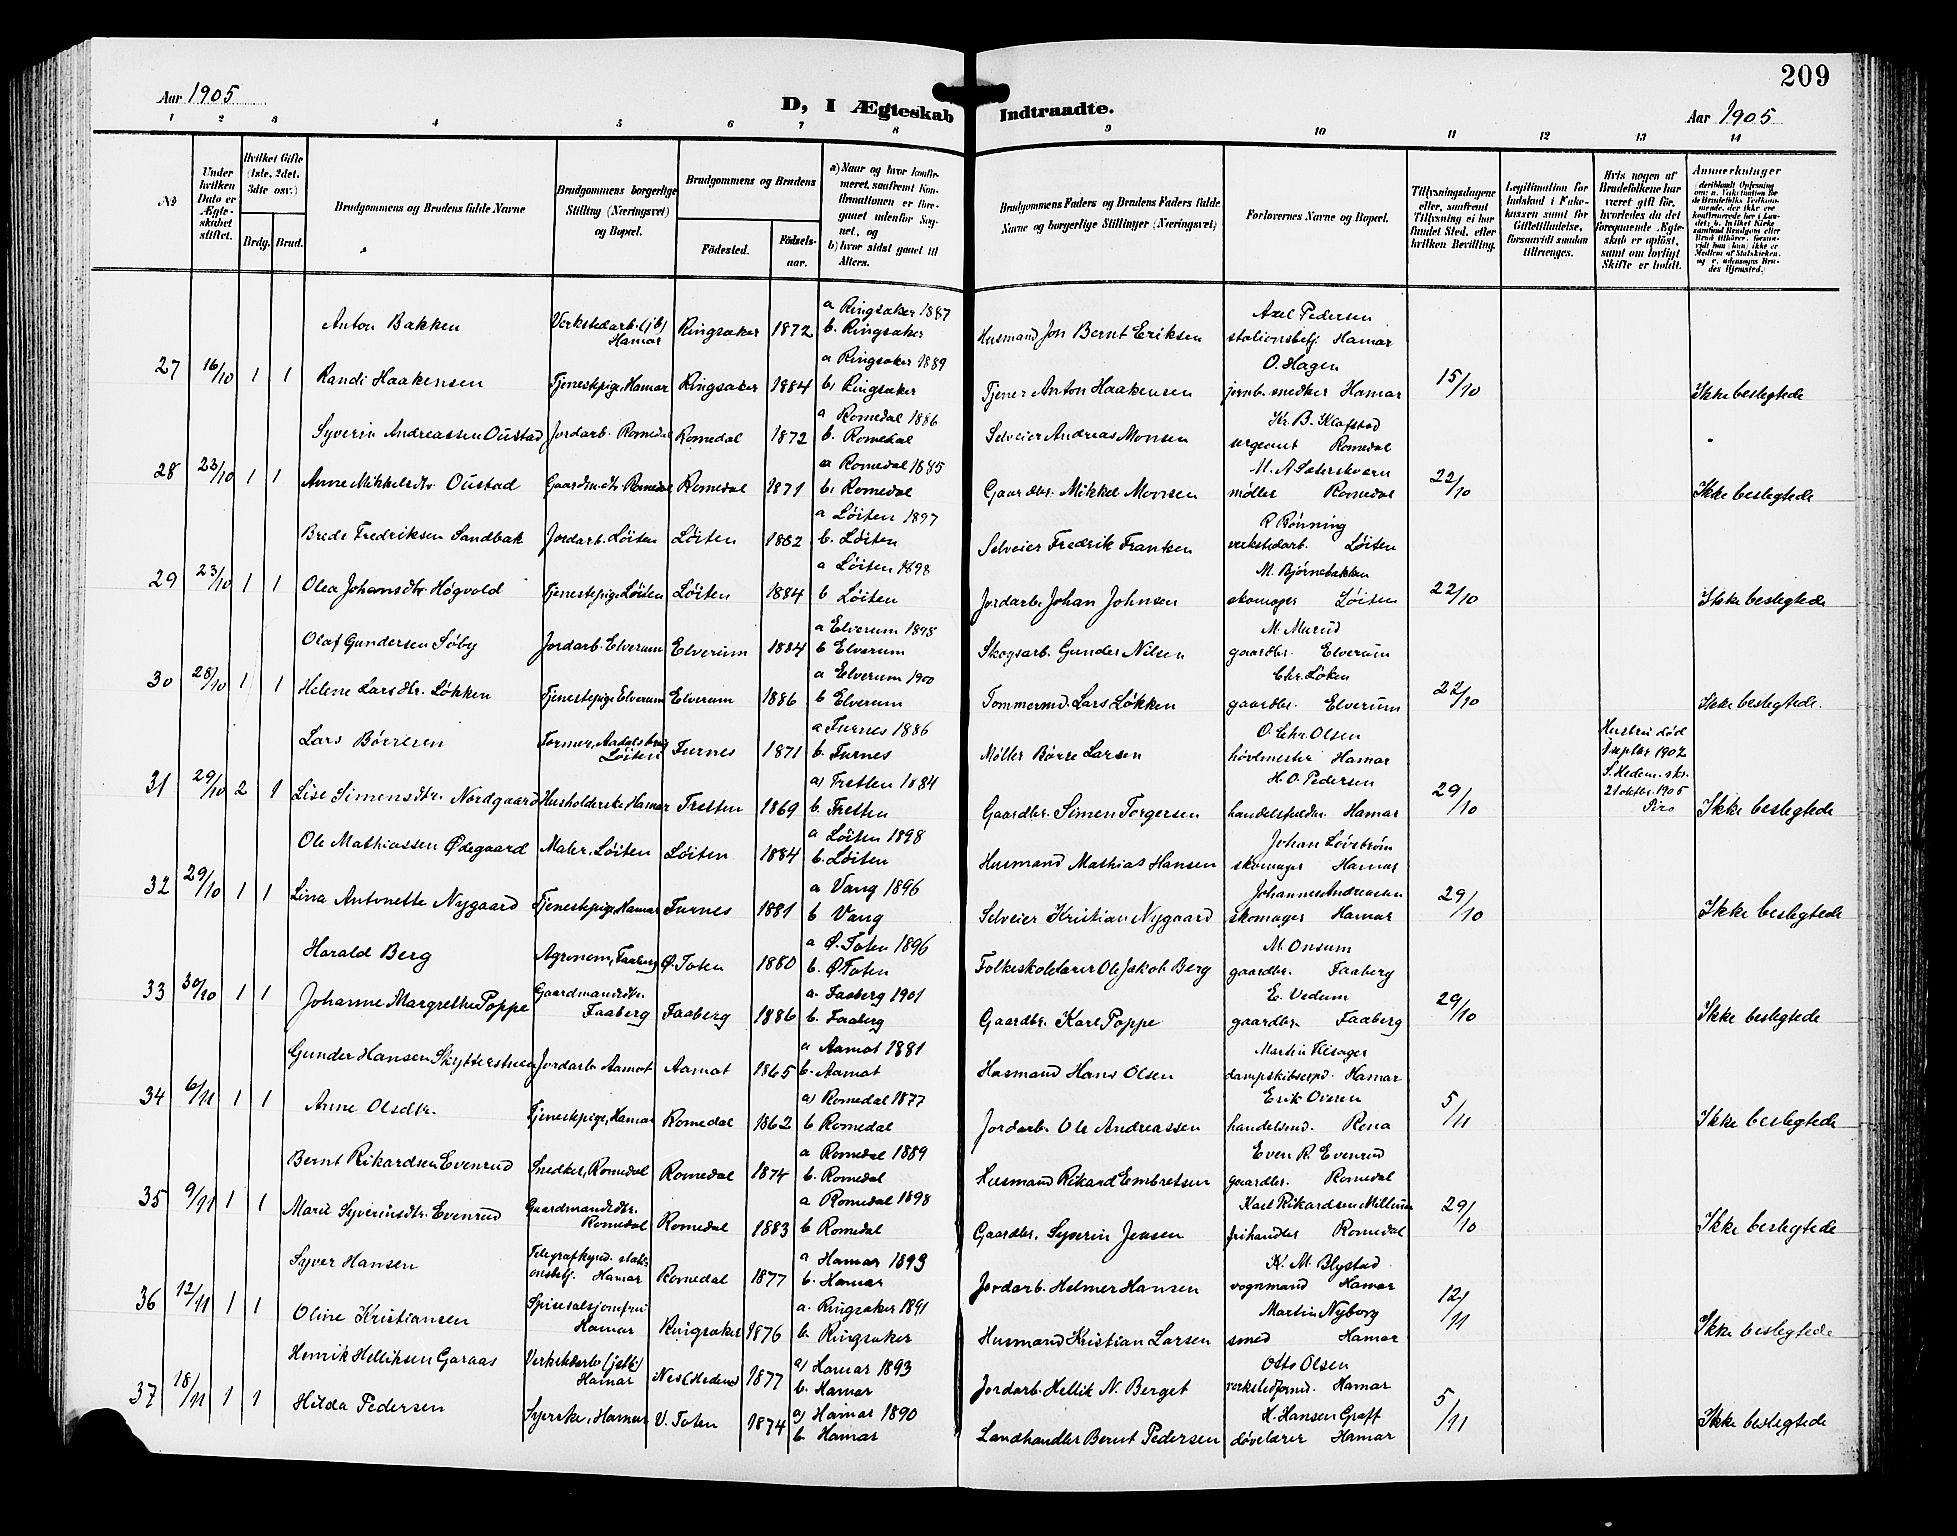 209
Aar 1905
D, I Ægteskab Indtraadte.
Aar 1905
1 2 3 4 5 6 7 8 9 10 11 12 13 14
No
Under hvilken Dato er Ægteskabet stiftet.
Hvilket Gifte (1ste, 2det, 3die osv.)
Brdg. Brud.
Brudgommens og Brudens fulde Navne
Brudgommens borgerlige Stilling (Næringsvei) og Bopæl.
Brudgommens og Brudens
Fødested.
Fødselsaar.
a) Naar og hvor konfirmeret, samfremt Konfirmationen er foregaaet udenfor Sognet, og
b) hvor sidst gaaet til Alters.
Brudgommens Faders og Brudens Faders fulde Navne og borgerlige Stillinger (Næringsvei)
Forlovernes Navne og Bopæl.
Tillysningsdagene eller, samfremt Tillysning ei har fundet Sted, efter hvilken Bevilling.
Legitimation for Indskud i Enkekassen samt for Giftetilladelse, forsaavidt saadan tiltrænges.
Hvis nogen af Brudefolkene har været gift før, hvorledes da det foregaaende Ægteskab er opløst, samt om lovligt Skifte er holdt.
Anmærkninger
Anton Bakken Verkstedarb. (jb) Hamar Ringsaker 1872 a Ringsaker 1887 b. Ringsaker Husmand Jon Bernt Eriksen Axel Pedersen stationsbetj. Hamar
27 16/10 1 1 Randi Haakensen Tjenestepige, Hamar Ringsaker 1884 a Ringsaker 1889 b, Ringsaker Tjener Anton Haakensen O. Hagen jernb. snedker Hamar 15/10 Ikke beslegtede
Syverin Andreassen Oustad Jordarb. Romedal Romedal 1872 a Romedal 1886 b. Romedal Selveier Andreas Monsen Kr. B. Klafstad sergeant Romedal
28 23/10 1 1 Anne Mikkelsdtr. Oustad Gaardm.dtr. Romedal Romedal 1871 a Romedal 1885 b, Romedal Gaardbr. Mikkel Monsen M. A. Sæterskvern møller Romedal 22/10 Ikke beslegtede
Brede Fredriksen Sandbak Jordarb. Løiten Løiten 1882 a Løiten 1897 b. Løiten Selveier Fredrik Franken R Rønning verkstedarb. Løiten
29 23/10 1 1 Olea Johansdtr Høgvold Tjenestepige Løiten Løiten 1884 a Løiten 1898 b Løiten Jordarb. Johan Johnsen M. Bjørnebakken skomager Løiten 22/10 Ikke beslegtede
Olaf Gundersen Søby Jordarb. Elverum Elverum 1884 a Elverum 1898 b Elverum Skogsarb. Gunder Nilsen M. Murud gaardbr. Elverum
30 28/10 1 1 Helene Larsdtr. Løkken Tjenestepige Elverum Elverum 1886 a Elverum 1900 b Elverum Tømmermd. Lars Løkken Chr. Løken gaardbr. Elverum 22/10 Ikke beslegtede.
Lars Børresen Former, Aadalsbrug Løiten Furnes 1871 a Furnes 1886 b. Furnes Møller Børre Larsen O. Chr. Olsen høvlmester Hamar Hustru død septbr 1902
31 29/10 2 1 Lise Simensdtr. Nordgaard Husholderske Hamar Tretten 1869 a) Tretten 1884 b. Tretten Gaardbr. Simen Torgersen H. O. Pedersen handelsfuldm. Hamar 29/10 S. Hedem. skr. 21 oktbr. 1905 Ikke beslegtede
Ole Mathiassen Ødegaard Maler, Løiten Løiten 1884 a Løiten 1898 b. Løiten Husmand Mathias Hansen Johan Løvstrøm skomager Hamar
32 29/10 1 1 Lina Antonette Nygaard Tjenestepige Hamar Furnes 1881 a Vang 1896 b Vang Selveier Kristian Nygaard Johannes Andreasen skomager Hamar 29/10 Ikke beslegtede
Harald Berg Agronom, Faaberg Ø. Toten 1880 a Ø. Toten 1896 b. Ø Toten Folkeskolelærer Ole Jakob Berg M. Onsum gaardbr. Faaberg
33 30/10 1 1 Johanne Margrethe Poppe Gaardmandsdtr. Faaberg Faaberg 1886 a. Faaberg 1901 b. Faaberg Gaardbr. Karl Poppe E. Vedum gaardbr. Faaberg 29/10 Ikke beslegtede
Gunder Hansen Skytterstuen Jordarb. Aamot Aamot 1865 a Aamot 1881 b. Aamot Husmand Hans Olsen Martin Kisager dampskibsexpd. Hamar
34 6/11 1 1 Anne Olsdtr. Tjenestepige, Hamar Romedal 1862 a) Romedal 1877 b Romedal Jordarb. Ole Andreassen Erik Ovren handelsmd. Rena 5/11 Ikke beslegtede
Bernt Rikardsen Evenrud Snedker, Romedal Romedal 1874 a Romedal 1889 b. Romedal Husmand Rikard Embretsen Even R. Evenrud gaardbr. Romedal
35 9/11 1 1 Marie Syverinsdtr. Evenrud Gaardmandsdtr. Romedal Romedal 1883 a Romedal 1898 b Romedal Gaardbr. Syverin Jensen Karl Rikardsen Millum frihandler Romedal 29/10 Ikke beslegtede
Syver Hansen Telegrafkynd. stationsbetj. Hamar Romedal 1877 a Hamar 1893 b. Hamar Jordarb. Helmer Hansen K. M. Blystad vognmand Hamar
36 12/11 1 1 Oline Kristiansen Spisesalsjomfru Hamar Ringsaker 1876 a. Ringsaker 1891 b. Ringsaker Husmand Kristian Larsen Martin Nyborg smed Hamar 12/11 Ikke beslegtede
Henrik Helliksen Garaas Verkstedarb (jstb) Hamar Nes (Hedem) 1877 a) Hamar 1893 b. Hamar Jordarb. Hellik N. Berget Otto Olsen verkstedformd. Hamar
37 18/11 1 1 Hilda Pedersen Syerske, Hamar V. Toten 1874 a) Hamar 1890 b. Hamar Landhandler Bernt Pedersen H. Hansen Graff døvelærer Hamar 5/11 Ikke beslegtede